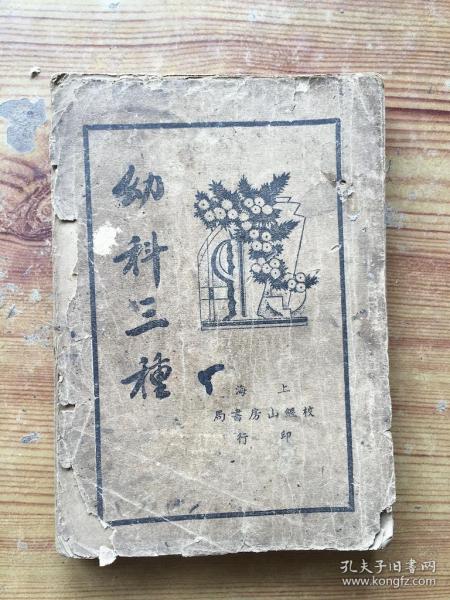 幼科三種
上海
校經山房書局
印行
孔夫子旧书网
www.kongfz.com